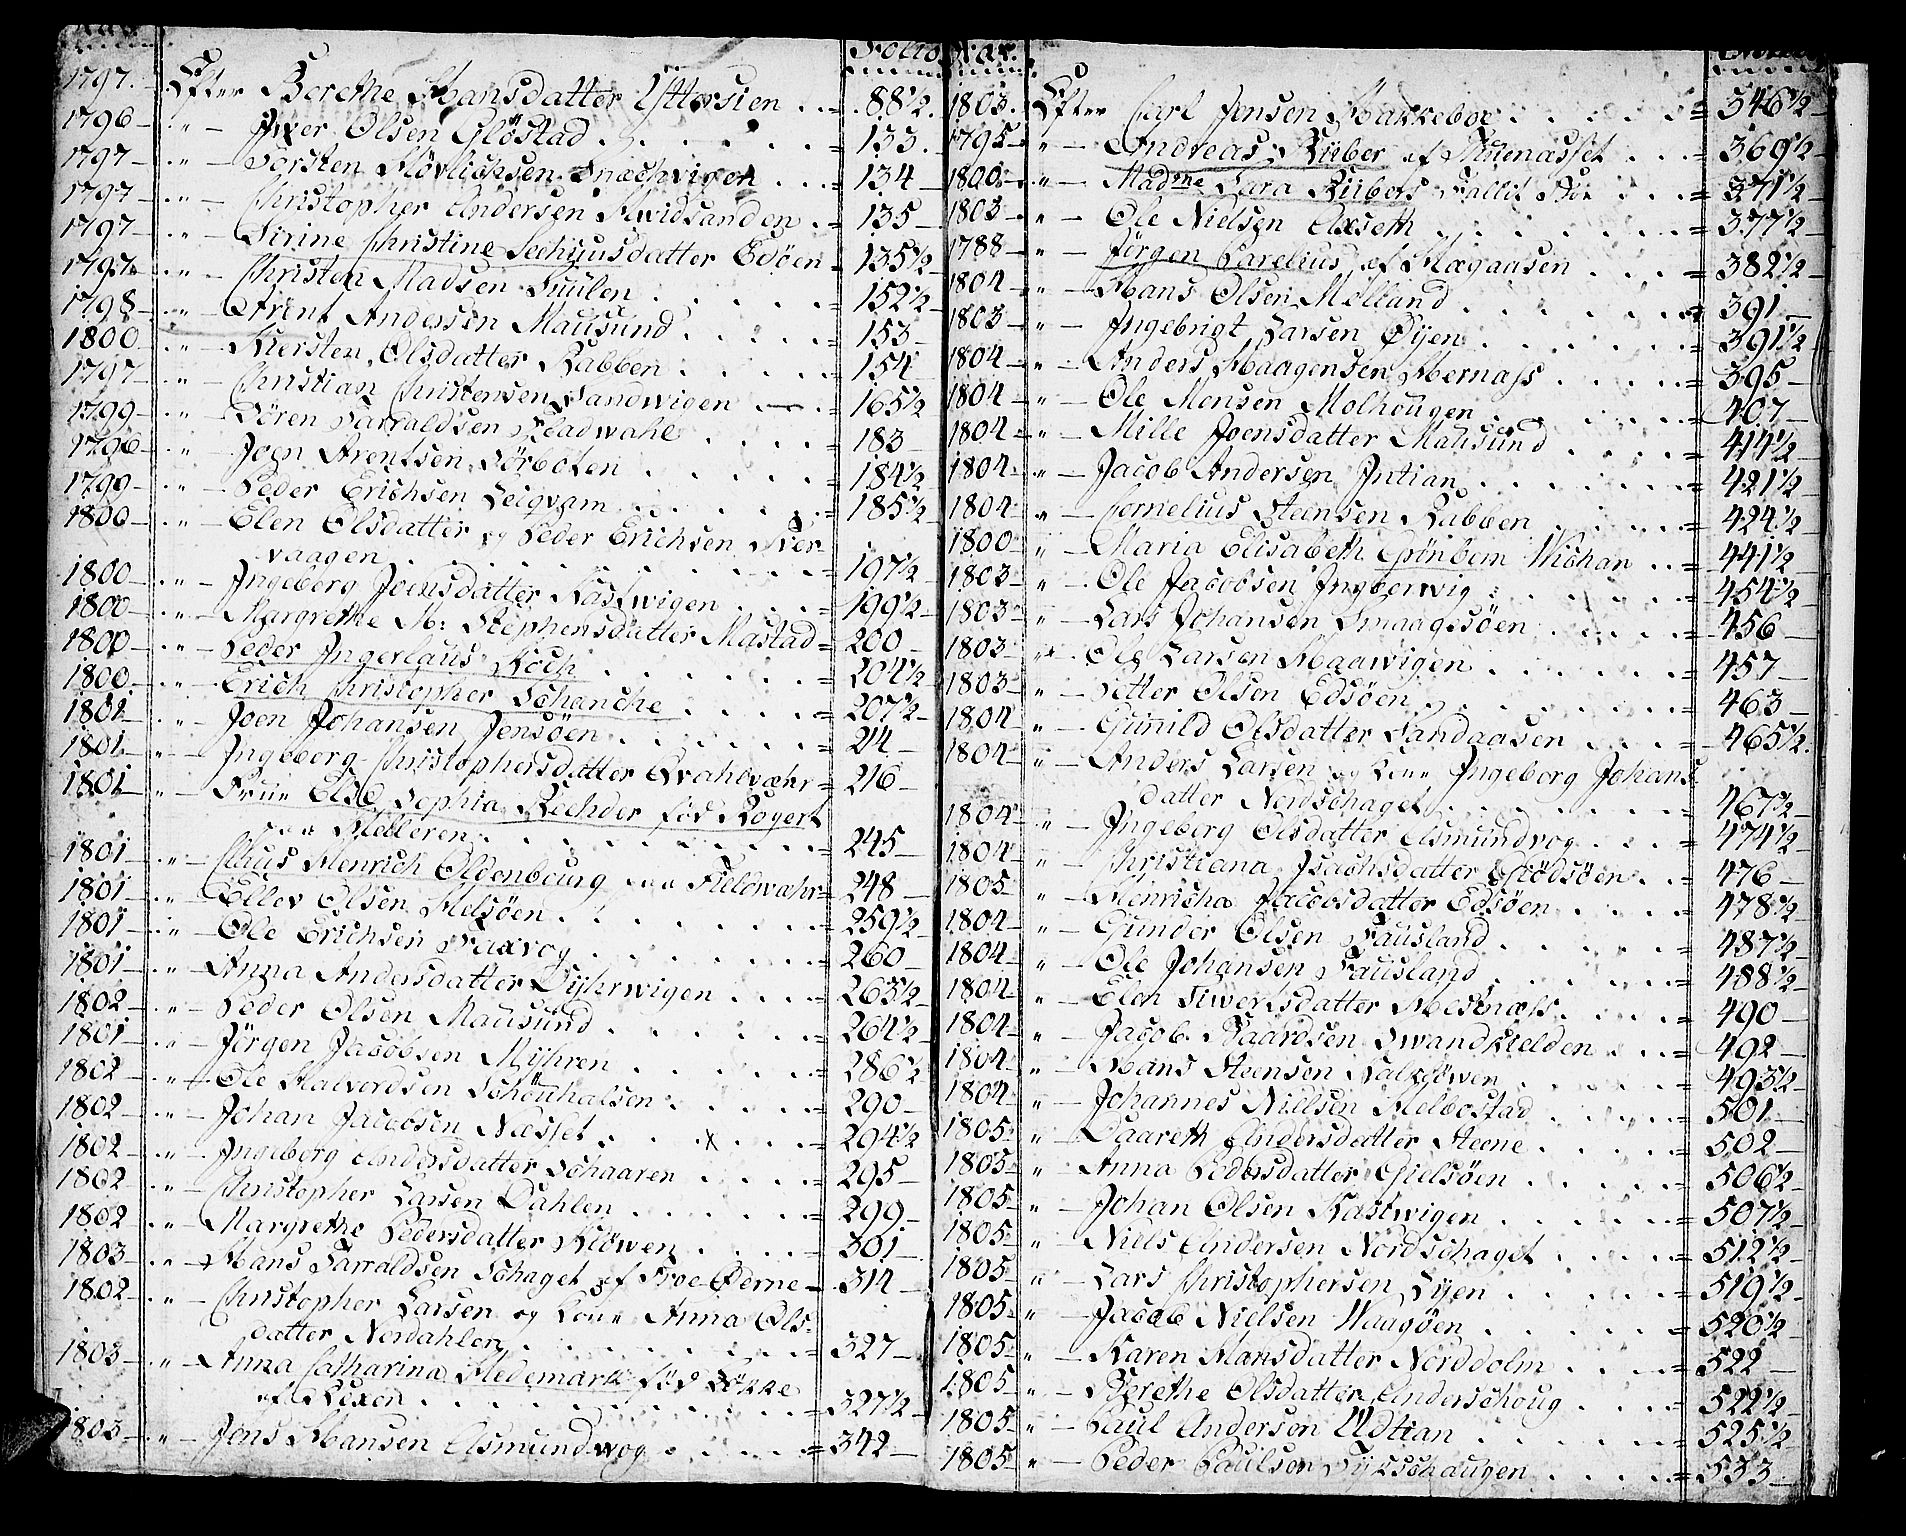 Aar
Folio
1797. Efter Berethe Hansdatter Yttersien .. = 88½.
1796 — „ — Iwer Olsen Gløstad . . . . . = 133.
1797 — „ — Torsten Fløvlichsen Snechvigen . . = 134 —
1797 — „ — Christopher Andersen Qwidsanden . = 135 —
1797 — „ — Sirine Christine Sechuusdatter Edøen = 135½ —
1797. „ — Christen Madsen Suulen . . . . . = 152½ —
1798 — „ — Arent Andersen Mausund . . . . . = 153 —
1800 — „ — Kiersten Olsdatter Rabben . . . . . = 154 —
1797 — „ — Christian Christensen Sandwigen — . = 165½
1799 — „ — Sören Harraldsen Stadwahl . . . . = 183
1796 — „ Joen Arentsen Sörboten . . . . . = 184½
1799 — „ — Peder Erichsen Leigvam . . . . . = 185½ —
1800 — „ — Elen Olsdatter og Peder Erichsen Ner-
vaagen . . . . . . . . . = 197½ —
1800 — „ — Ingeborg Joensdatter Kastwigen . . . = 199½ —
1800 — „ — Margrethe M: Stephensdatter Mastad = 200 —
1800 — „ — Peder Ingerlaus Koch . . . . . = 204½
1800 — „ — Erich Christopher Schanche . . . . = 207½ —
1801 — „ — Joen Johansen Jensöen . . . . . = 214 —
1801. — „ — Ingeborg Christophersdatter Qvahlvæhr = 216 —
1801 — „ — Frue Else Sophia Rechder fød Rogert
paa Stelleren . . . . . . . . = 245 —
1801 — „ — Claus Henrich Oldenbourg paa Fieldwahr = 248 —
1801 — „ — Ellev Olsen Helsöen . . . . . . = 259½ —
1801 — „ — Ole Erichsen Faxvog . . . . . . = 260 —
1801 — „ — Anna Andersdatter Dyhrwigen . . . . = 263½ —
1802 — „ — Peder Olsen Mausund . . . . . . = 264½ —
1801 — „ — Jörgen Jacobsen Myhren . . . . . = 286½
1802 — „ — Ole Halvordsen Schönhalsen . . . . . = 290 —
1802 — „ — Johan Jacobsen Næsset . . . x . . . = 294½
1802 — „ — Ingeborg Andersdatter Schaaren . . . . = 295 —
1802 — „ — Christopher Larsen Dahlen . . . . . = 299. —
1802 — „ — Margrethe Pedersdatter Klöwen . . . . = 301 —
1803 — „ — Hans Harraldsen Schaget af Froe Øerne = 314 —
1802 — „ — Christopher Larsen og Kone Anna Ols-
datter Nordahlen . . . . . . . = 327 —
1803 — „ — Anna Catharina Hedemark fød Lökke
af Rixen . . . . . . . . = 327½ —
1803 — „ — Jens Hansen Asmundwog . . . . = 342 —
Aar.
1803. Efter Carl Jensen Bakkeboe . . . . . = 346½ —
1795 — „ — Andreas Rüber af Thuenæsset . . . = 369½ —
1800. — „ — Madme Sara Rübers Fallit Boe . . . = 371½ —
1803 — „ — Ole Nielsen Axseth . . . . . . = 377½ —
1788 — „ — Jörgen Parelius af Magaasen . . . = 382½ —
1804 — „ — Hans Olsen Melland . . . . . . = 391 —
1803 — „ — Ingebrigt Larsen Øyen . . . . . . = 391½
1804 — „ — Anders Haagensen Hernæss . . . . = 395 —
1804 — „ — Ole Monsen Molhougen . . . . . = 407 —
1804 — „ — Mille Joensdatter Mausund . . . . = 414½
1804 — „ — Jacob Andersen Intian . . . . . = 421½ —
1804 — „ — Cornelius Steensen Rabben . . . . = 424½
1800 — „ — Maria Elisabeth Grönbem Wichan . . = 441½
1803 — „ — Ole Jacobsen Ingberwig . . . . . = 454½ —
1803 — „ — Lars Johansen Smaagesöen . . . . = 456 —
1803 — „ — Ole Larsen Haawigen . . . . . . = 457 —
1803 — „ — Petter Olsen Edsöen . . . . . . = 463 —
1804 — „ — Gunild Olsdatter Sandaasen . . . . = 465½.
1804 — „ — Anders Larsen og Kone Ingeborg Johans-
datter Nordschaget . . . . . . . = 467½ —
1804 — „ — Ingeborg Olsdatter Asmundvog . . . = 474½
1804 — „ — Christiana Isachsdatter Grödsöen . . = 476 —
1805 — „ — Henricha Jacobsdatter Edsöen . . . . = 478½
1804 — „ — Gunder Olsen Fausland . . . . . = 487½ —
1804. „ — Ole Johansen Fausland . . . . . . = 488½
1804 — „ — Elen Siwertsdatter Hesnæss . . . . . = 490 —
1804 — „ — Jacob Baardsen Swandkielden . . . = 492 —
1804 — „ — Hans Steensen Kalsöwen . . . . . = 493½ —
1804 — „ — Johannes Nielsen Melbostad . . . . = 501 —
1805 — „ — Daareth Andersdatter Steene . . . . = 502 —
1805 — „ — Anna Pedersdatter Gielsöen . . . . = 506½ —
1805 — „ — Johan Olsen Kastwigen . . . . . = 507½ —
1805. „ — Niels Andersen Nordschaget . . . . = 512½ —
1805 „ — Lars Christophersen Lyen . . . . . = 519½ —
1805. „ — Jacob Nielsen Waagöen . . . . . = 520½ —
1805. „ — Karen Hansdatter Norddolm . . . . = 522 —
1805 — „ — Berethe Olsdatter Anderschoug . . . = 522½ —
1805 — „ — Paul Andersen Udtian . . . . . = 525½ —
1805 — „ — Peder Paulsen Fyhschaugen . . . . = 533 —